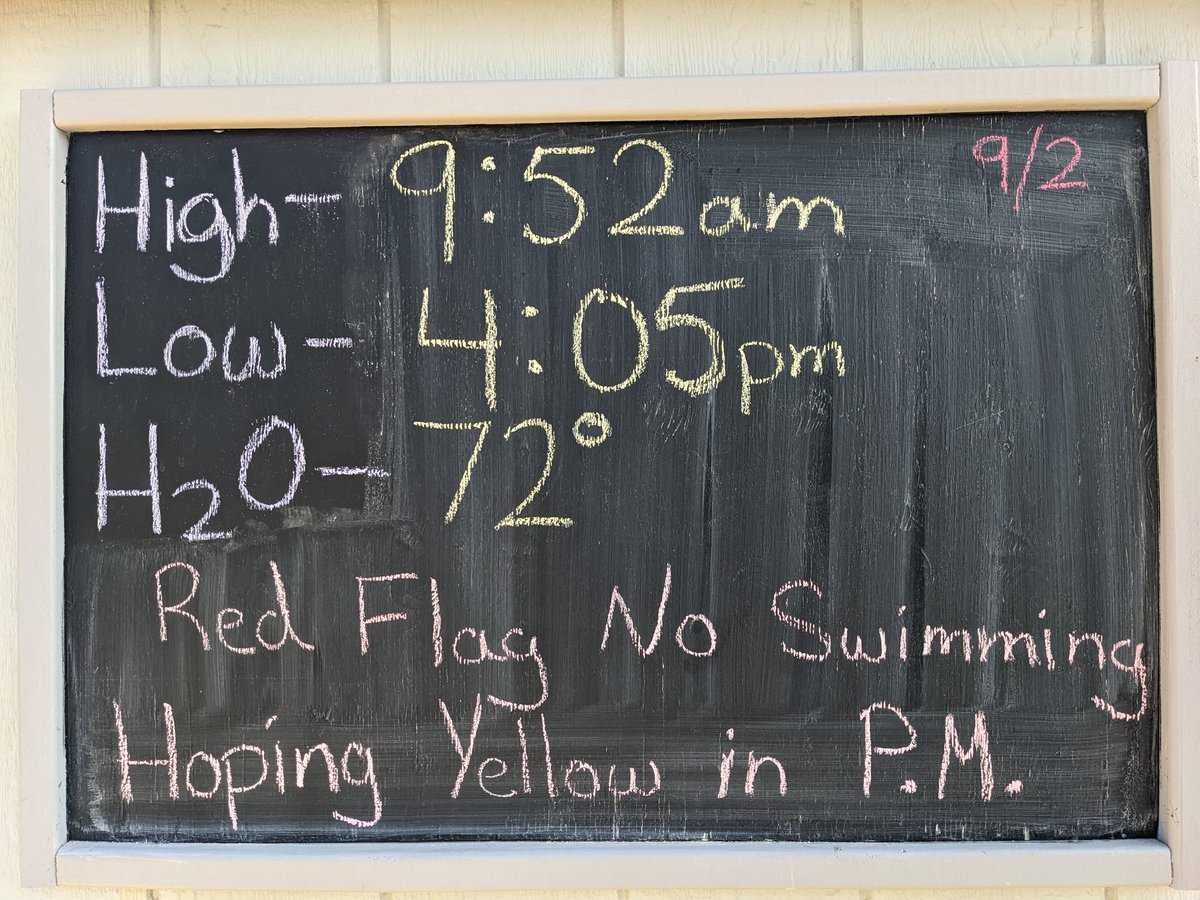 9/2
High- 9:52am
Low- 4:05pm
H₂O- 72°
Red Flag No Swimming
Hoping Yellow in P.M.